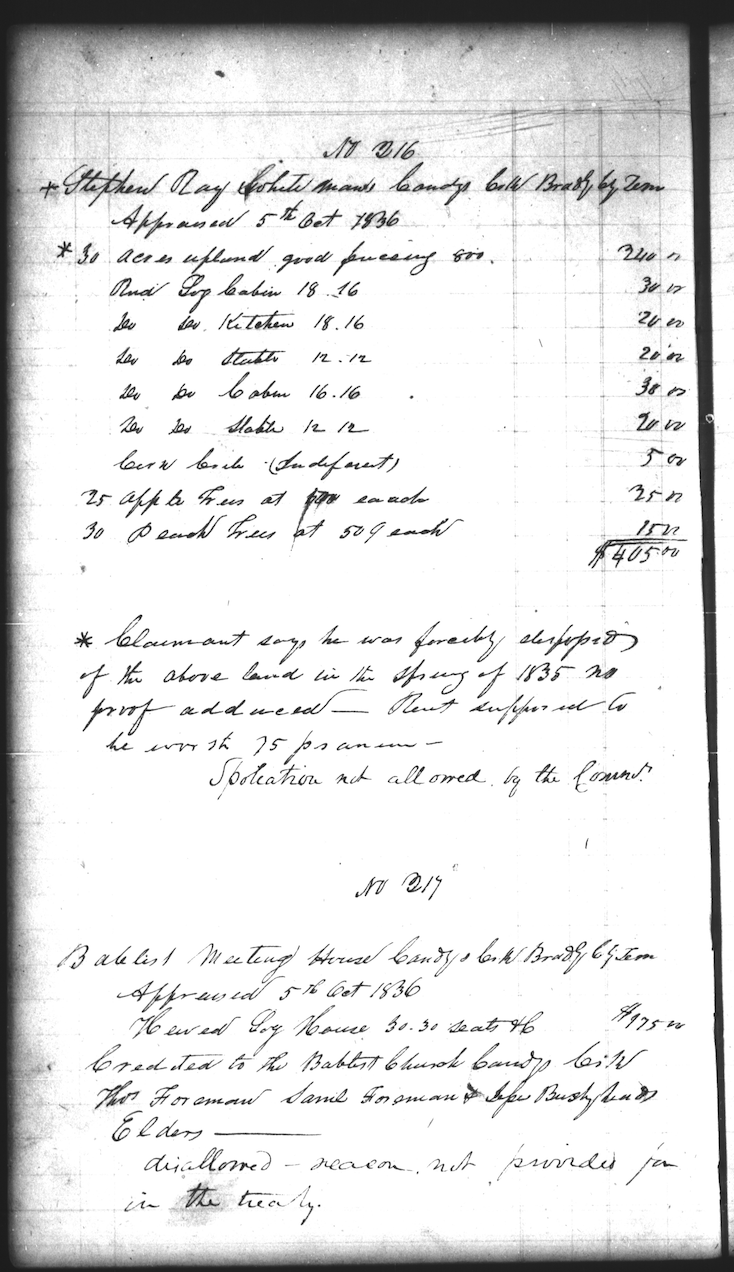 No 216
* Stephen Ray White man's Candys Crk Bradly Cy Tenn
Appraised 5th Oct 1836
* 30 acres upland good fencing 800. 240 00
Rnd Log Cabin 18.16 30 00
Do Do. Kitchen 18.16 20 00
Do Do Stable 12.12 20 00
Do Do Cabin 16.16 30 00
Do Do Stable 12 12 20 00
Corn Crib (Indiferent) 5 00
25 apple Trees at eaach 25 00
30 Peach Trees at 50 ȼ each 15 00
$405 00
* Claimant says he was forcibly dispossed
of the above land in the spring of 1835 no
proof adduced — Rent supposed to
be worth 75 pr anum —
Spoliation not allowed by the Comrs.
No 217
Babtist Meeting House Candys Crk Bradly Cy Tenn
Appraised 5th Oct 1836
Hewed Log House 30.30 seats &c $175 00
Credited to the Babtist Church Candys Crk
Thos Foreman Saml Foreman & Jesse Bushyheads
Elders —
disallowed – reason, not provided for
in the treaty.